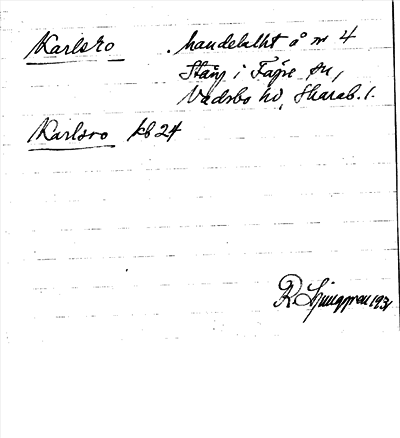 Karlsro . handelslht å nr 4
Stång i Fägre sn,
Vadsbo hd, Skarab. l.
Karlsro kb 24
R Ljunggren 1931